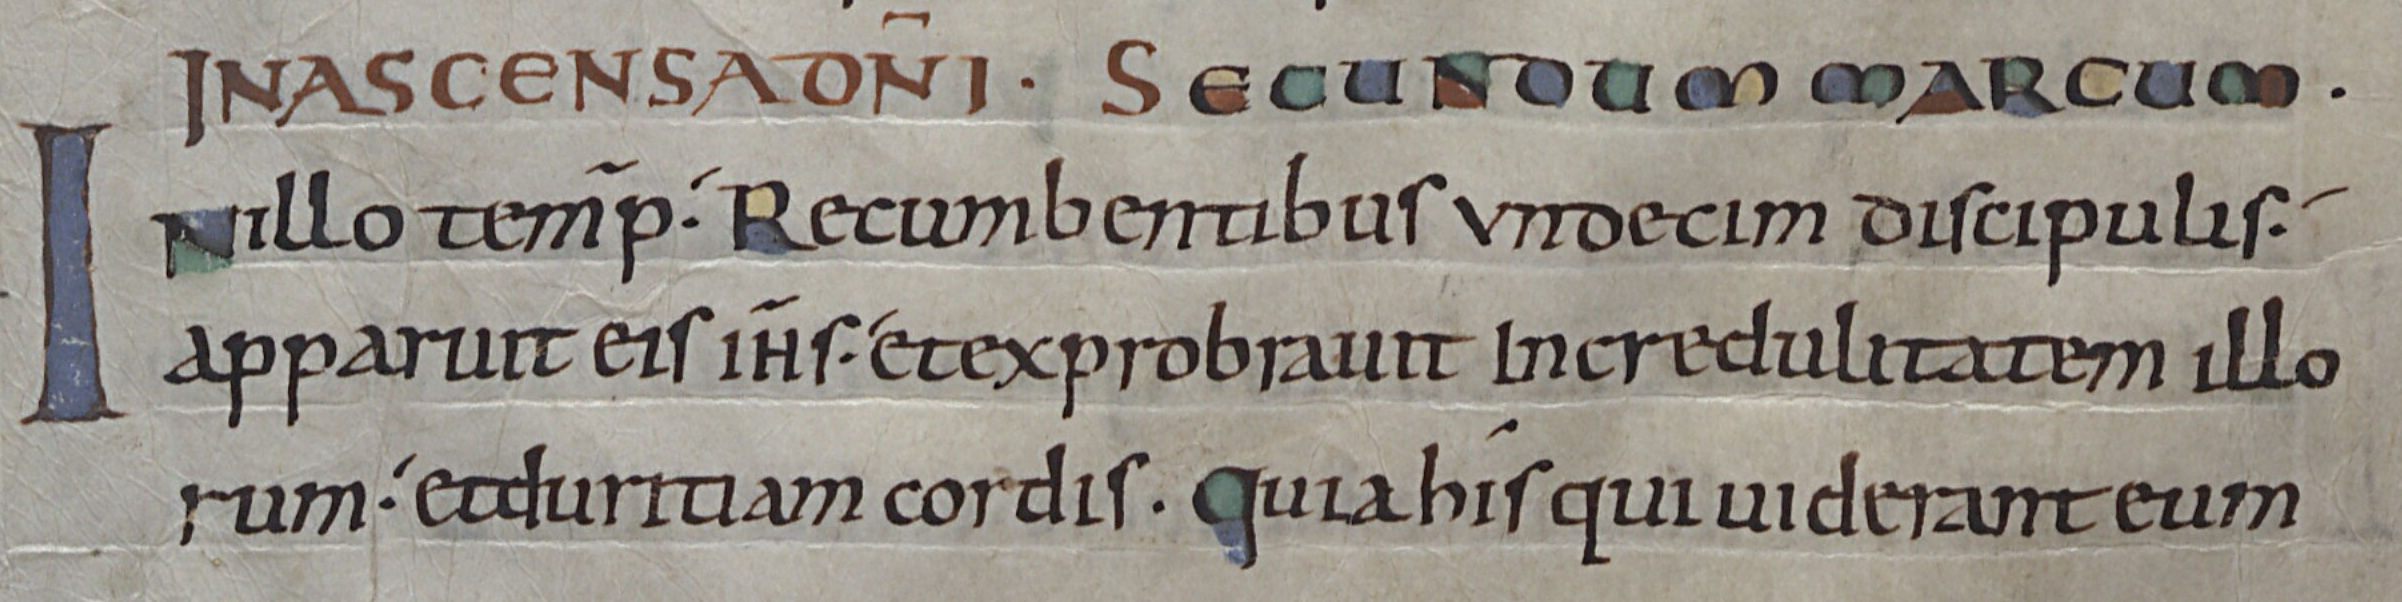 IN ASCENSA DÑI. SECUNDUM MARCUM.
IN illo temp̃. Recumbentibus undecim discipulis.
apparuit eis ih̃s. et exprobrauit incredulitatem illo
rum. et duritiam cordis. Quia his qui uiderant eum